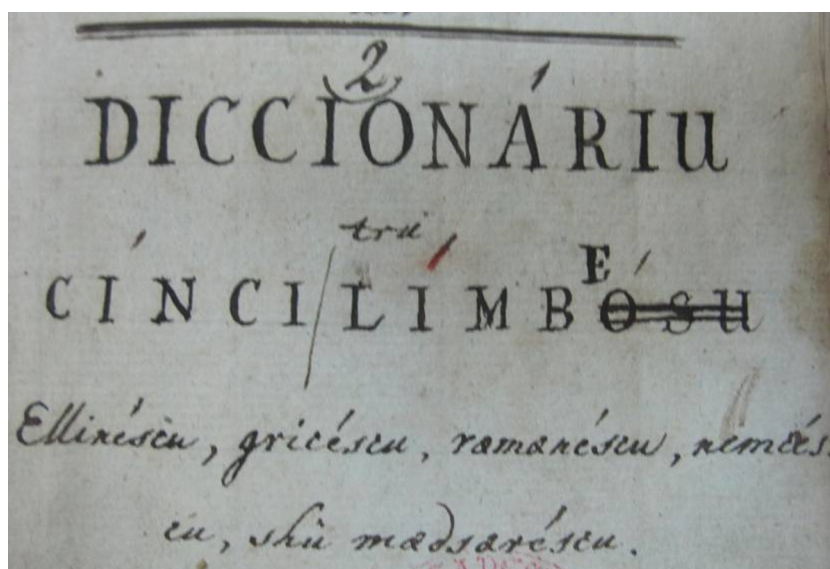 2
DICCIONÁRIU
trü
CÍNCI/LÍMBÓSU
E
Ellinéscu, gricéscu, ramanéscu, nemcés-
cu, shü mædsaréscu.